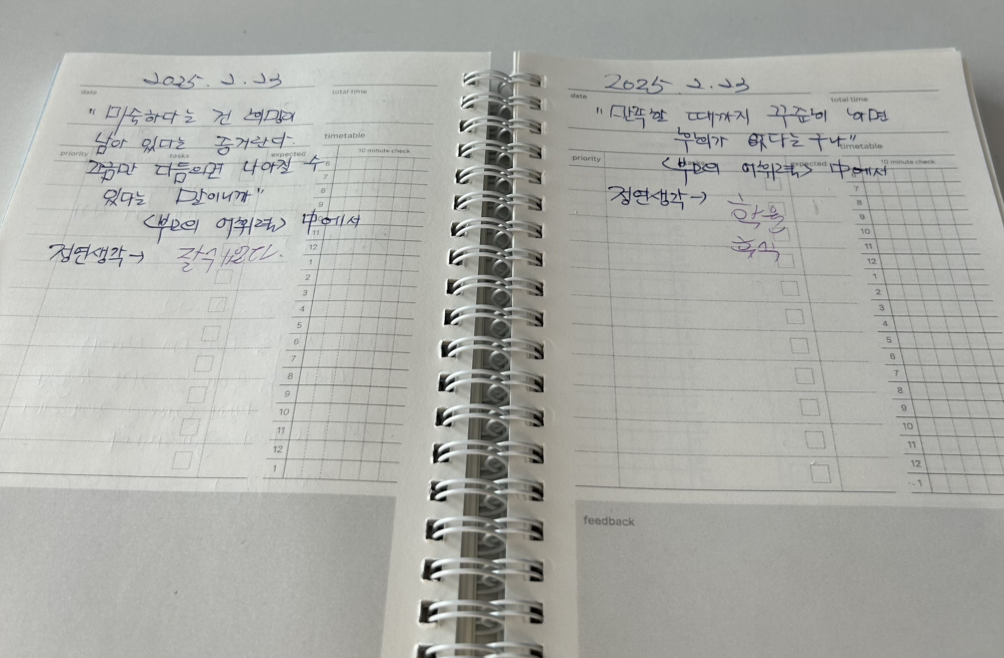 2025. 2. 23
date
total time
"미숙하다는 건
남아 있다는 증거란다.
timetable
priority
tasks
expected
10 minute check
조금만 다듬으면 나아질 수
있다는 말이니까"
<부모의 어휘력> 中에서
정연생각→
6
7
8
9
11
12
1
2
3
4
5
6
7
8
9
10
11
12
1
2025. 2. 23
date
total time
"만족할 때까지 꾸준히 하면
무리가 없다는구나"
timetable
priority
10 minute check
<부모의 어휘력> 中에서
정연생각→
7
8
9
10
11
12
1
2
3
4
5
6
7
8
9
10
11
12
1
feedback